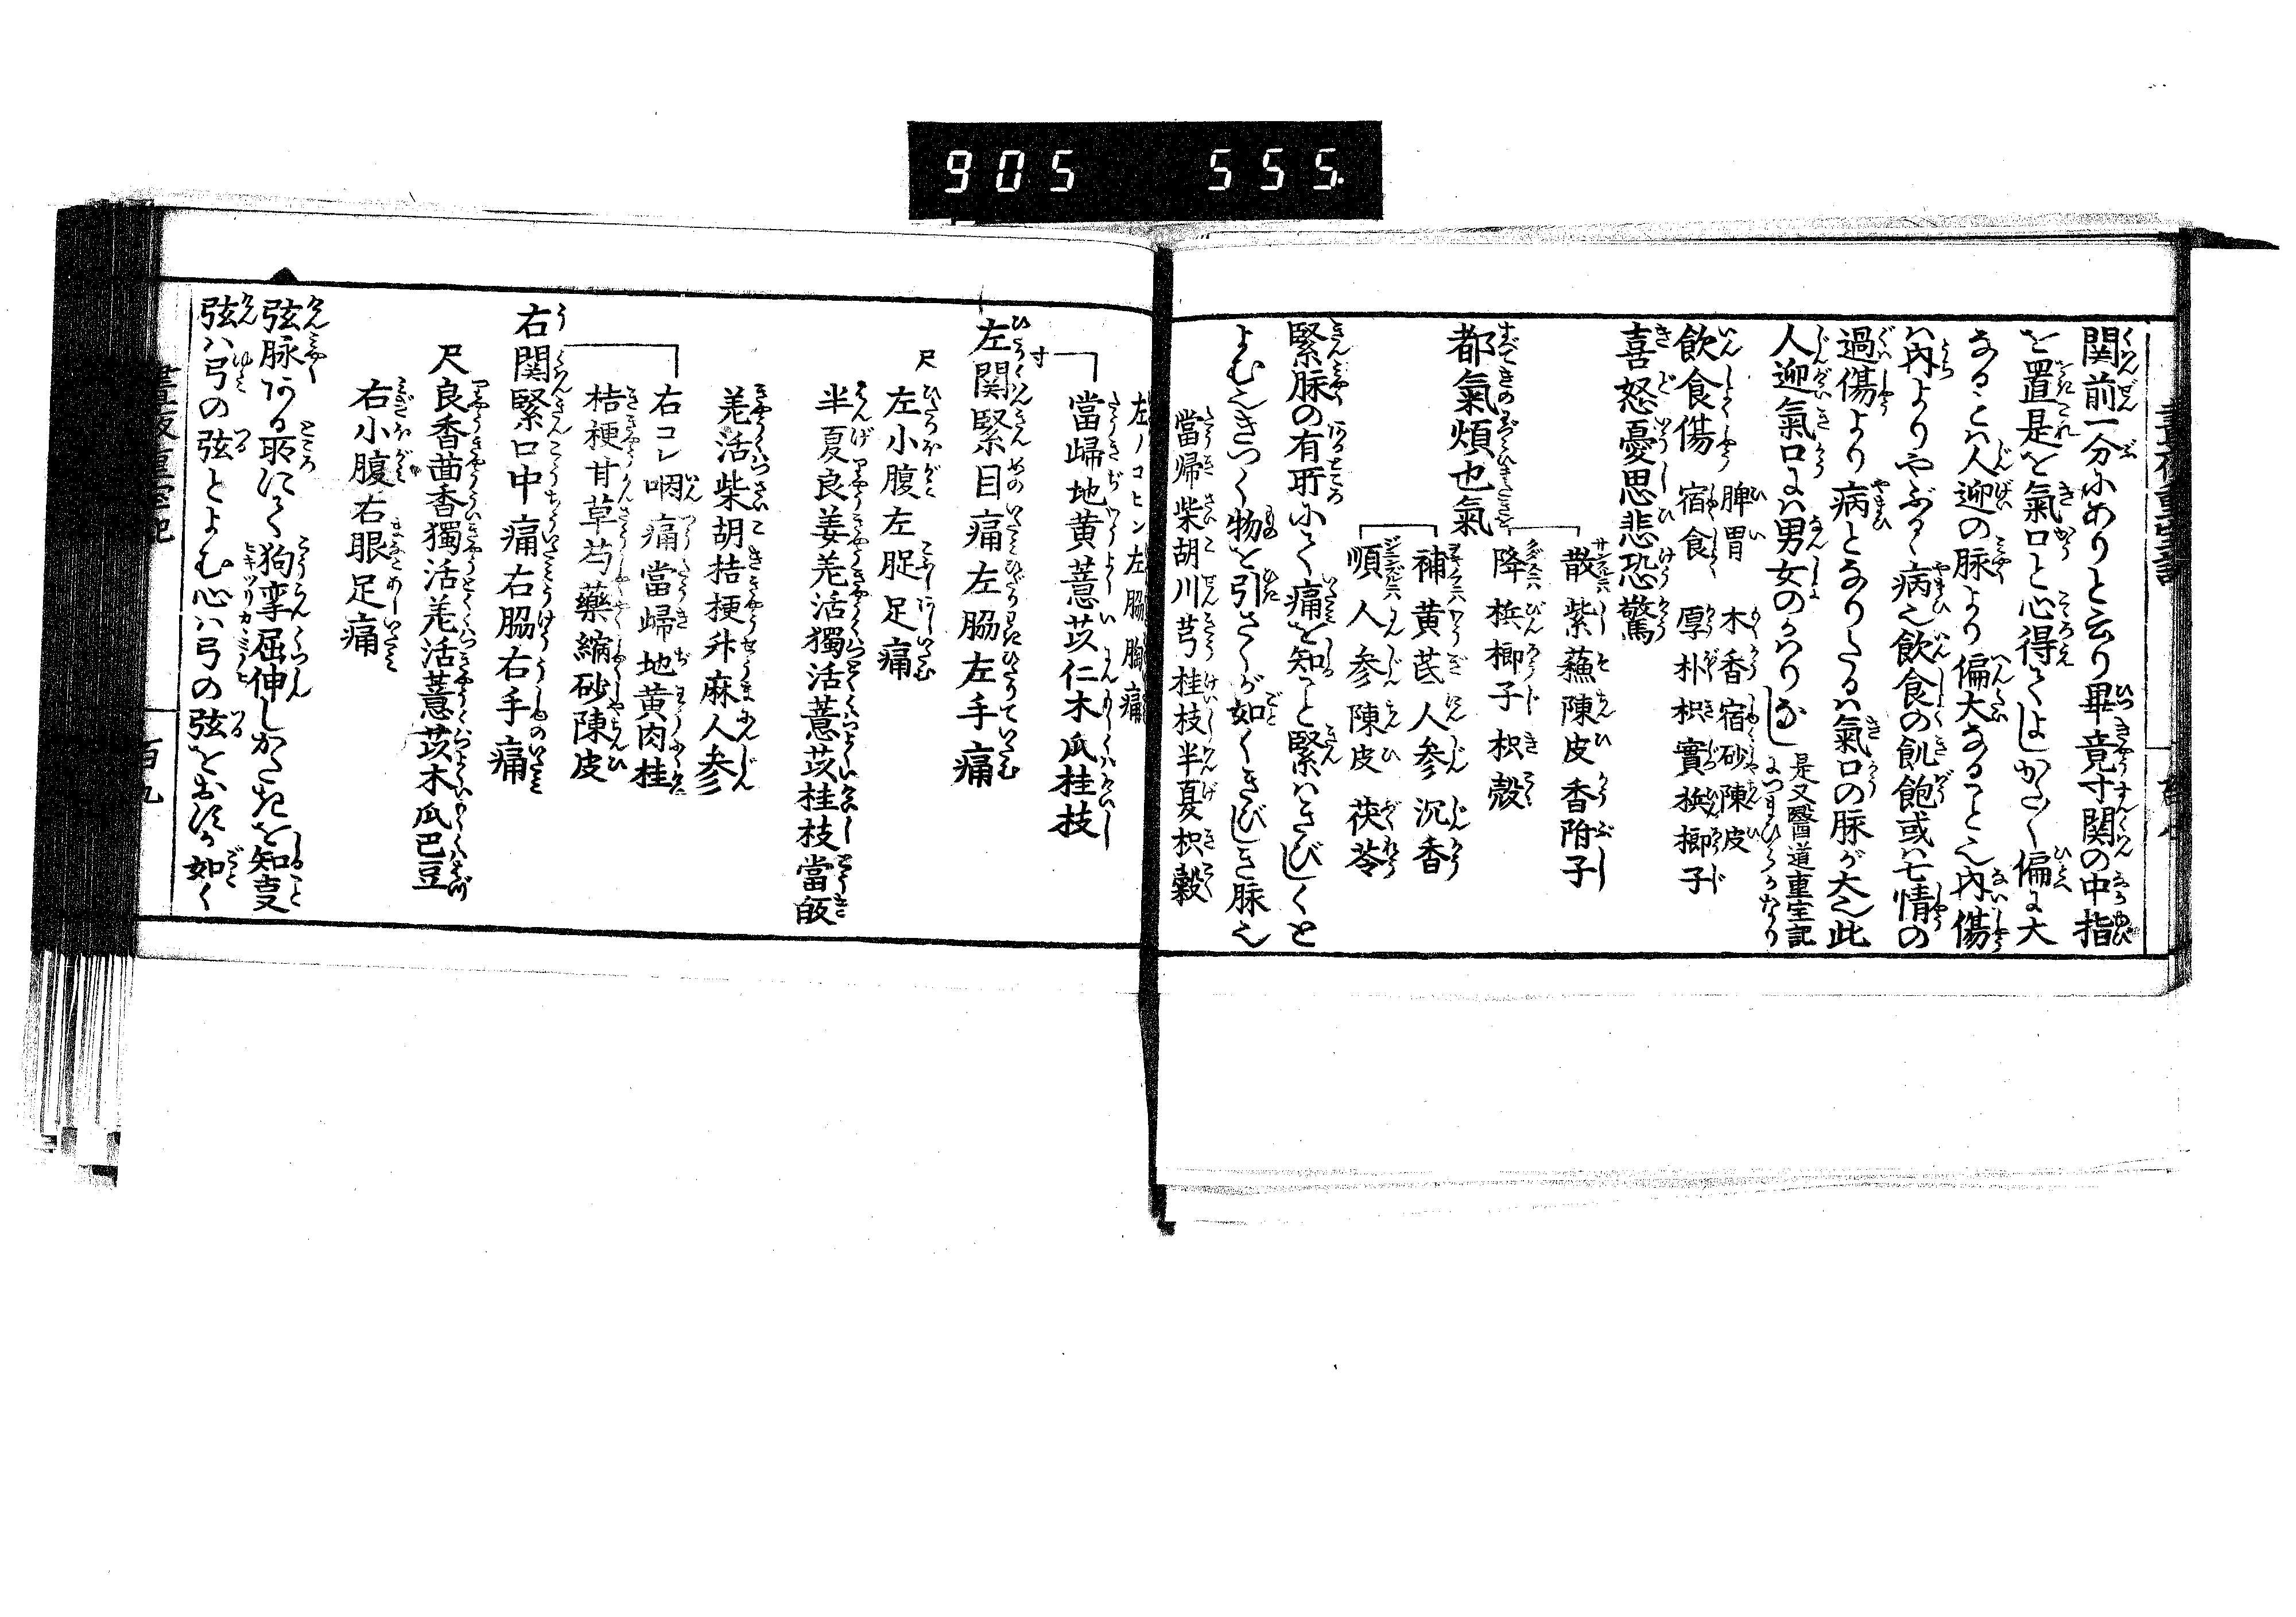 905 555.
関前一分にありと云り畢竟寸関の中指
を置是を氣口と心得てよしかたく偏に大
なることハ人迎の脉より偏大なることハ内傷
ハ内よりやぶるゝ病也飲食の飢飽或ハ七情の
過傷より病となりたるハ氣口の脉が大也此
人迎氣口にハ男女のかハりなし 是又醫道重宝記
につまびらかなり
飲食傷 脾胃 木香宿砂陳皮
宿食 厚朴枳實梹榔子
喜怒憂思悲恐驚
散 紫蘓陳皮香附子
降 梹榔子枳殻
都氣煩也氣
補 黄芪人参沉香
順 人参陳皮茯苓
緊脉の有所にて痛を知こと緊ハきびしくと
よむ也きつく物を引さくが如くきびしき脉也
當帰柴胡川芎桂枝半夏枳殻
左ノコヒン左脇胸痛
當歸地黄薏苡仁木瓜桂枝
寸
左関緊目痛左脇左手痛
尺 左小腹左足痛
半夏良姜羌活獨活薏苡桂枝當皈
羌活柴胡桔梗升麻人参
右コレ咽痛當歸地黄肉桂
桔梗甘草芍藥縮砂陳皮
右関緊口中痛右脇右手痛
尺 良香茴香獨活羌活薏苡木瓜巴豆
右小腹右眼足痛
弦脉ある所にて狗攣屈伸しがたきを知支
弦ハ弓の弦とよむ心ハ弓の弦をおすが如く
百九